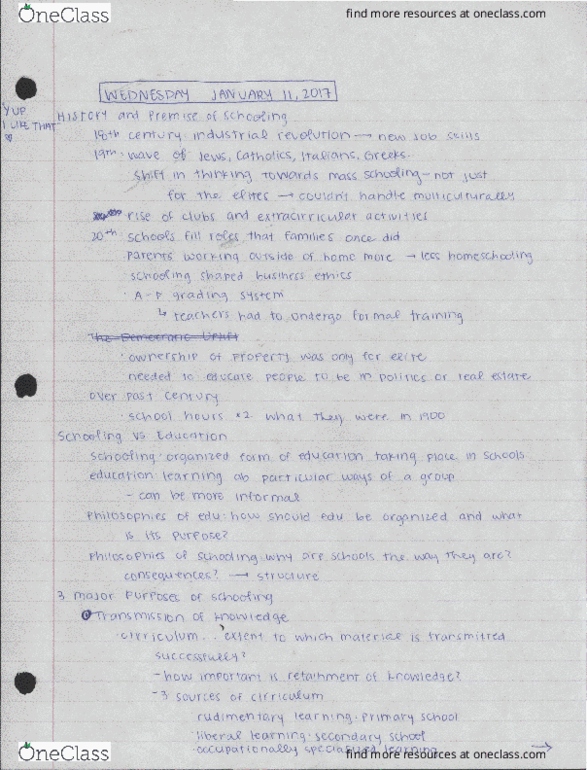 OneClass
find more resources at oneclass.com
WEDNESDAY JANUARY 11, 2017
YUP
I LIKE THAT
HISTORY and Premise of Schooling
18th century: industrial revolution → new job skills
19th: wave of Jews, Catholics, Italians, Greeks.
shift in thinking towards mass schooling - not just
for the elites → couldn't handle multiculturally
rise of clubs and extracirricular activities
20th: schools fill roles that families once did
Parents working outside of home more → less homeschooling
schooling shared business ethics
· A-F grading system
↳ teachers had to undergo formal training
The Democratic Uplift
· ownership of property was only for elite
needed to educate people to be in politics or real estate
over past century
· school hours x2 what they were in 1900
Schooling vs Education
schooling: organized form of education taking place in schools
education: learning ab particular ways of a group
- can be more informal
Philosophies of edu: how should edu be organized and what
is its purpose?
Philosophies of schooling: why are schools the way they are?
consequences? → structure
3 major purposes of schooling
Transmission of knowledge
· cirriculum... extent to which material is transmitted
successfully?
- how important is retainment of knowledge?
- 3 sources of cirriculum
rudimentary learning · primary school
liberal learning · secondary school
occupationally specialized learning →
OneClass
find more resources at oneclass.com